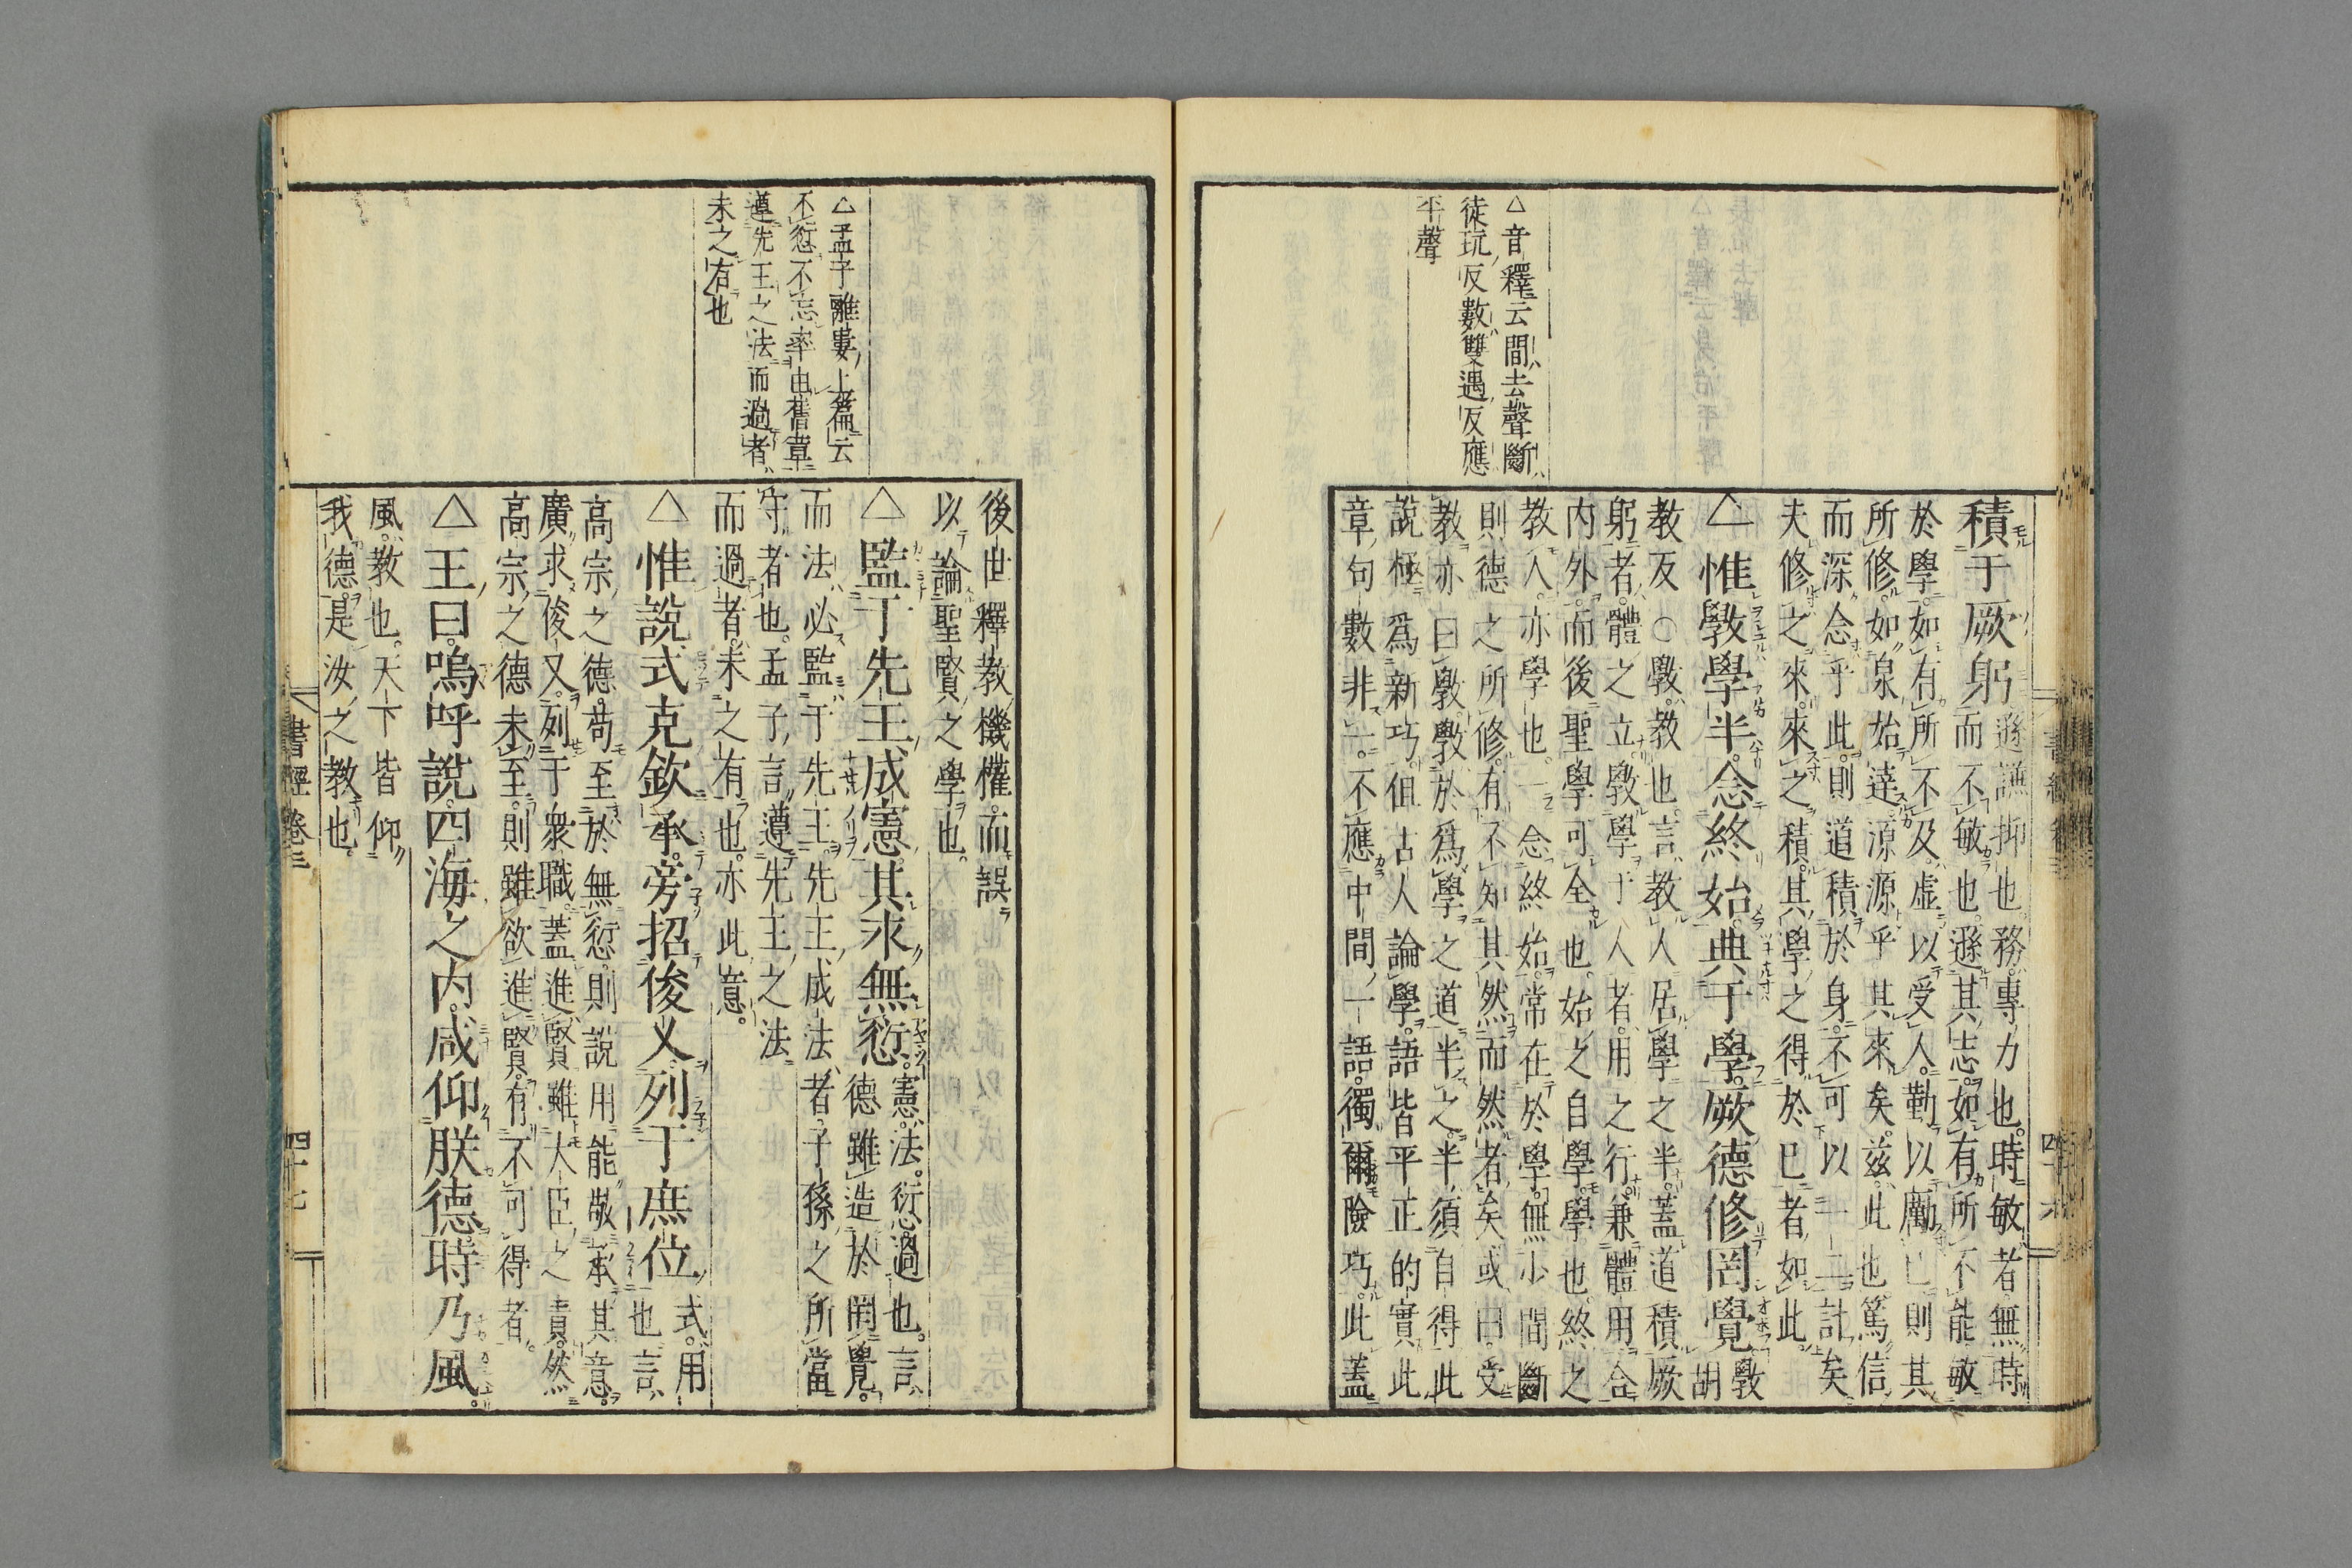 △音釋云間去聲斷
徒玩反數雙遇反應
平聲
積于厥躬遜謙抑也務專力也時敏者無時
而不敏也遜其志如有所不能敏
於學如有所不及虛以受人勤以勵己則其
所修如泉始達源源乎其來矣茲此也篤信
而深念乎此則道積於身不可以一二計矣
夫修之來來之積其學之得於己者如此
△惟斆學半念終始典于學厥德修罔覺斆胡
教反○斆教也言教人居學之半蓋道積厥
躬者體之立斆學于人者用之行兼體用合
內外而後聖學可全也始之自學學也終之
教人亦學也一念終始常在於學無少間斷
則德之所修有不知其然而然者矣或曰受
教亦曰斆斆於爲學之道半之半須自得此
說極爲新巧但古人論學語皆平正的實此
章句數非一不應中間一語獨爾險巧此蓋
△孟子離婁上篇云
不愆不忘率由舊章
遵先王之法而過者
未之有也
後世釋教機權而誤
以論聖賢之學也
△監于先王成憲其永無愆憲法愆過也言
德雖造於罔覺
而法必監于先王先王成法者子孫之所當
守者也孟子言遵先王之法
而過者未之有也亦此意
△惟說式克欽承旁招俊乂列于庶位式用
也言
高宗之德苟至於無愆則說用能敬承其意
廣求俊乂列于衆職蓋進賢雖大臣之責然
高宗之德未至則雖欲進賢有不可得者
△王曰嗚呼說四海之內咸仰朕德時乃風
風教也天下皆仰
我德是汝之教也
書經卷三
四十七